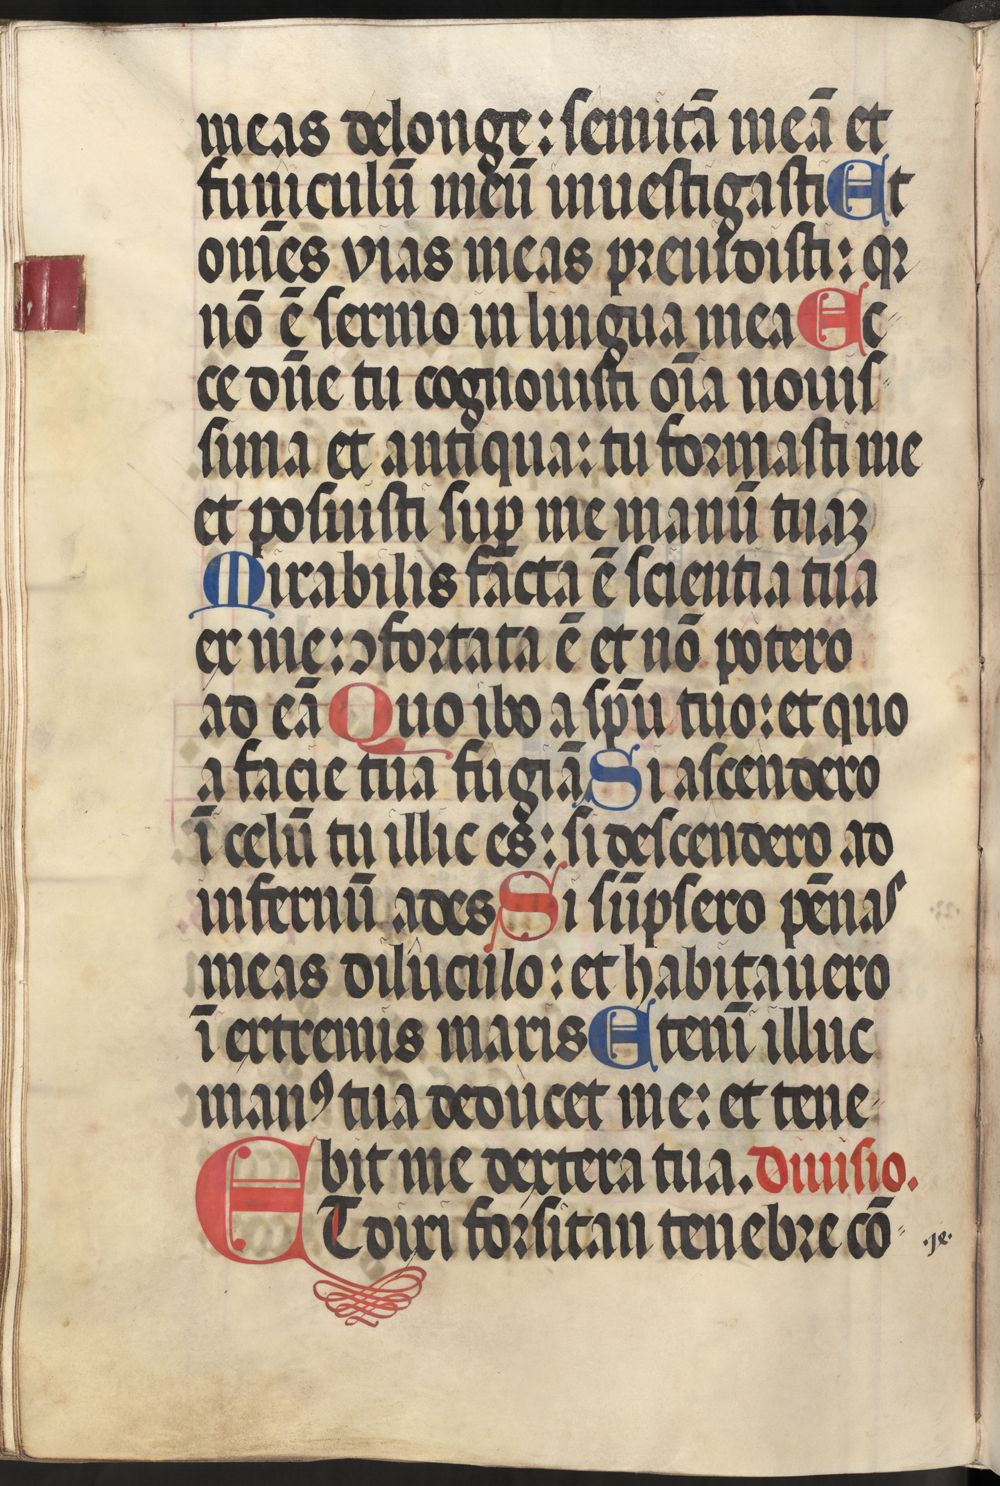 meas de longe: semitā meā et
funiculū meū inuestigasti Et
om̄es vias meas preuidisti: qꝛ
nō ē sermo in lingua mea Ec-
ce dn̄e tu cognouisti oīa nouis-
sima et antiqua: tu formasti me
et posuisti suꝑ me manū tuaꝫ
Mirabilis facta ē scientia tua
ex me: ↄfortata ē et nō potero
ad eā Quo ibo a sp̄u tuo: et quo
a facie tua fugiā Si ascendero
ī celū tu illic es: si descendero ad
infernū ades Si sūpsero pēnas
meas diluculo: et habitauero
ī extremis maris Etenī illuc
manꝰ tua deducet me: et tene-
bit me dextera tua. Diuisio.
ET dixi forsitan tenebre cō-